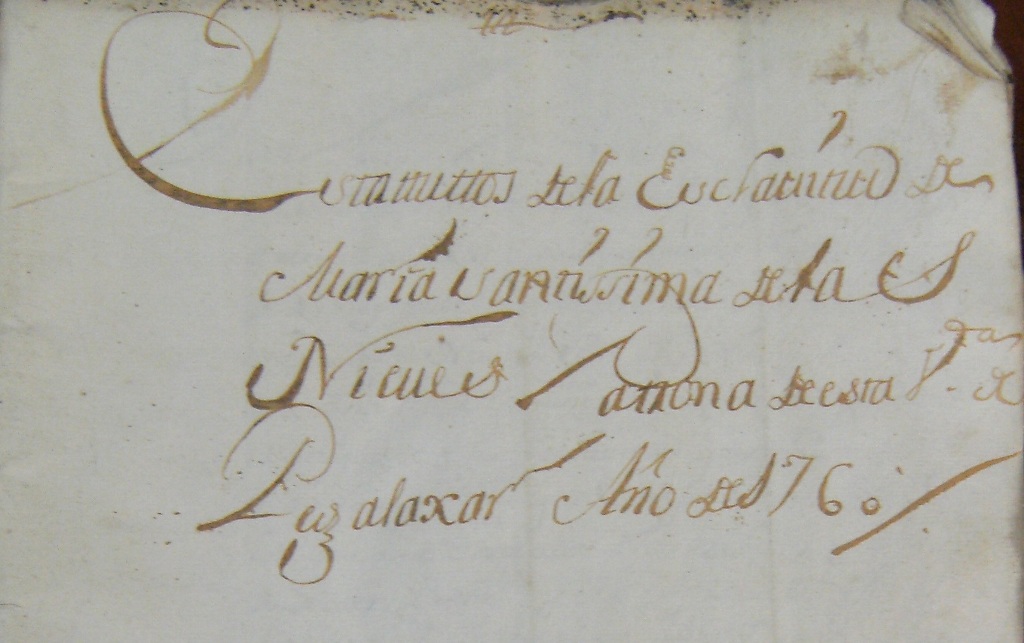 Estatuttos de la Esclavitud de
Maria Santissima de las
Nieues Pattrona de esta V.ª de
Pegalaxar Año de 1760